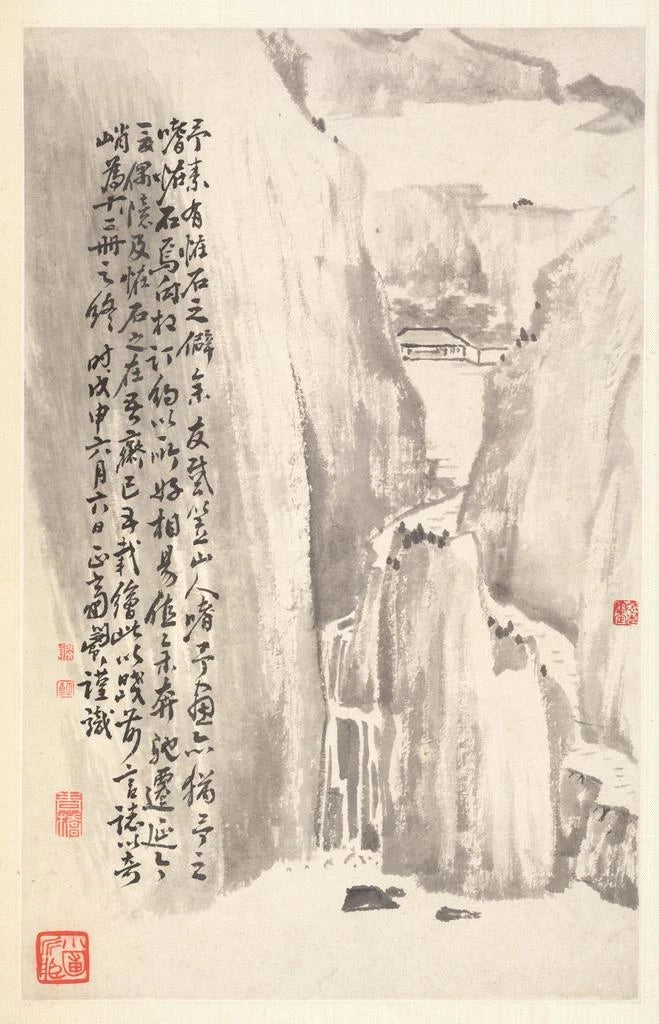 予素有恠石之僻余友戴笠山人嗜予画亦猶予之
嗜恠石焉向相訂約以所好相易值余奔馳遷延今
夏偶憶及恠石之在吾齋已五載繪此以踐前言誌以奇
峭為十二冊之終 時戊申六月六日 謹識